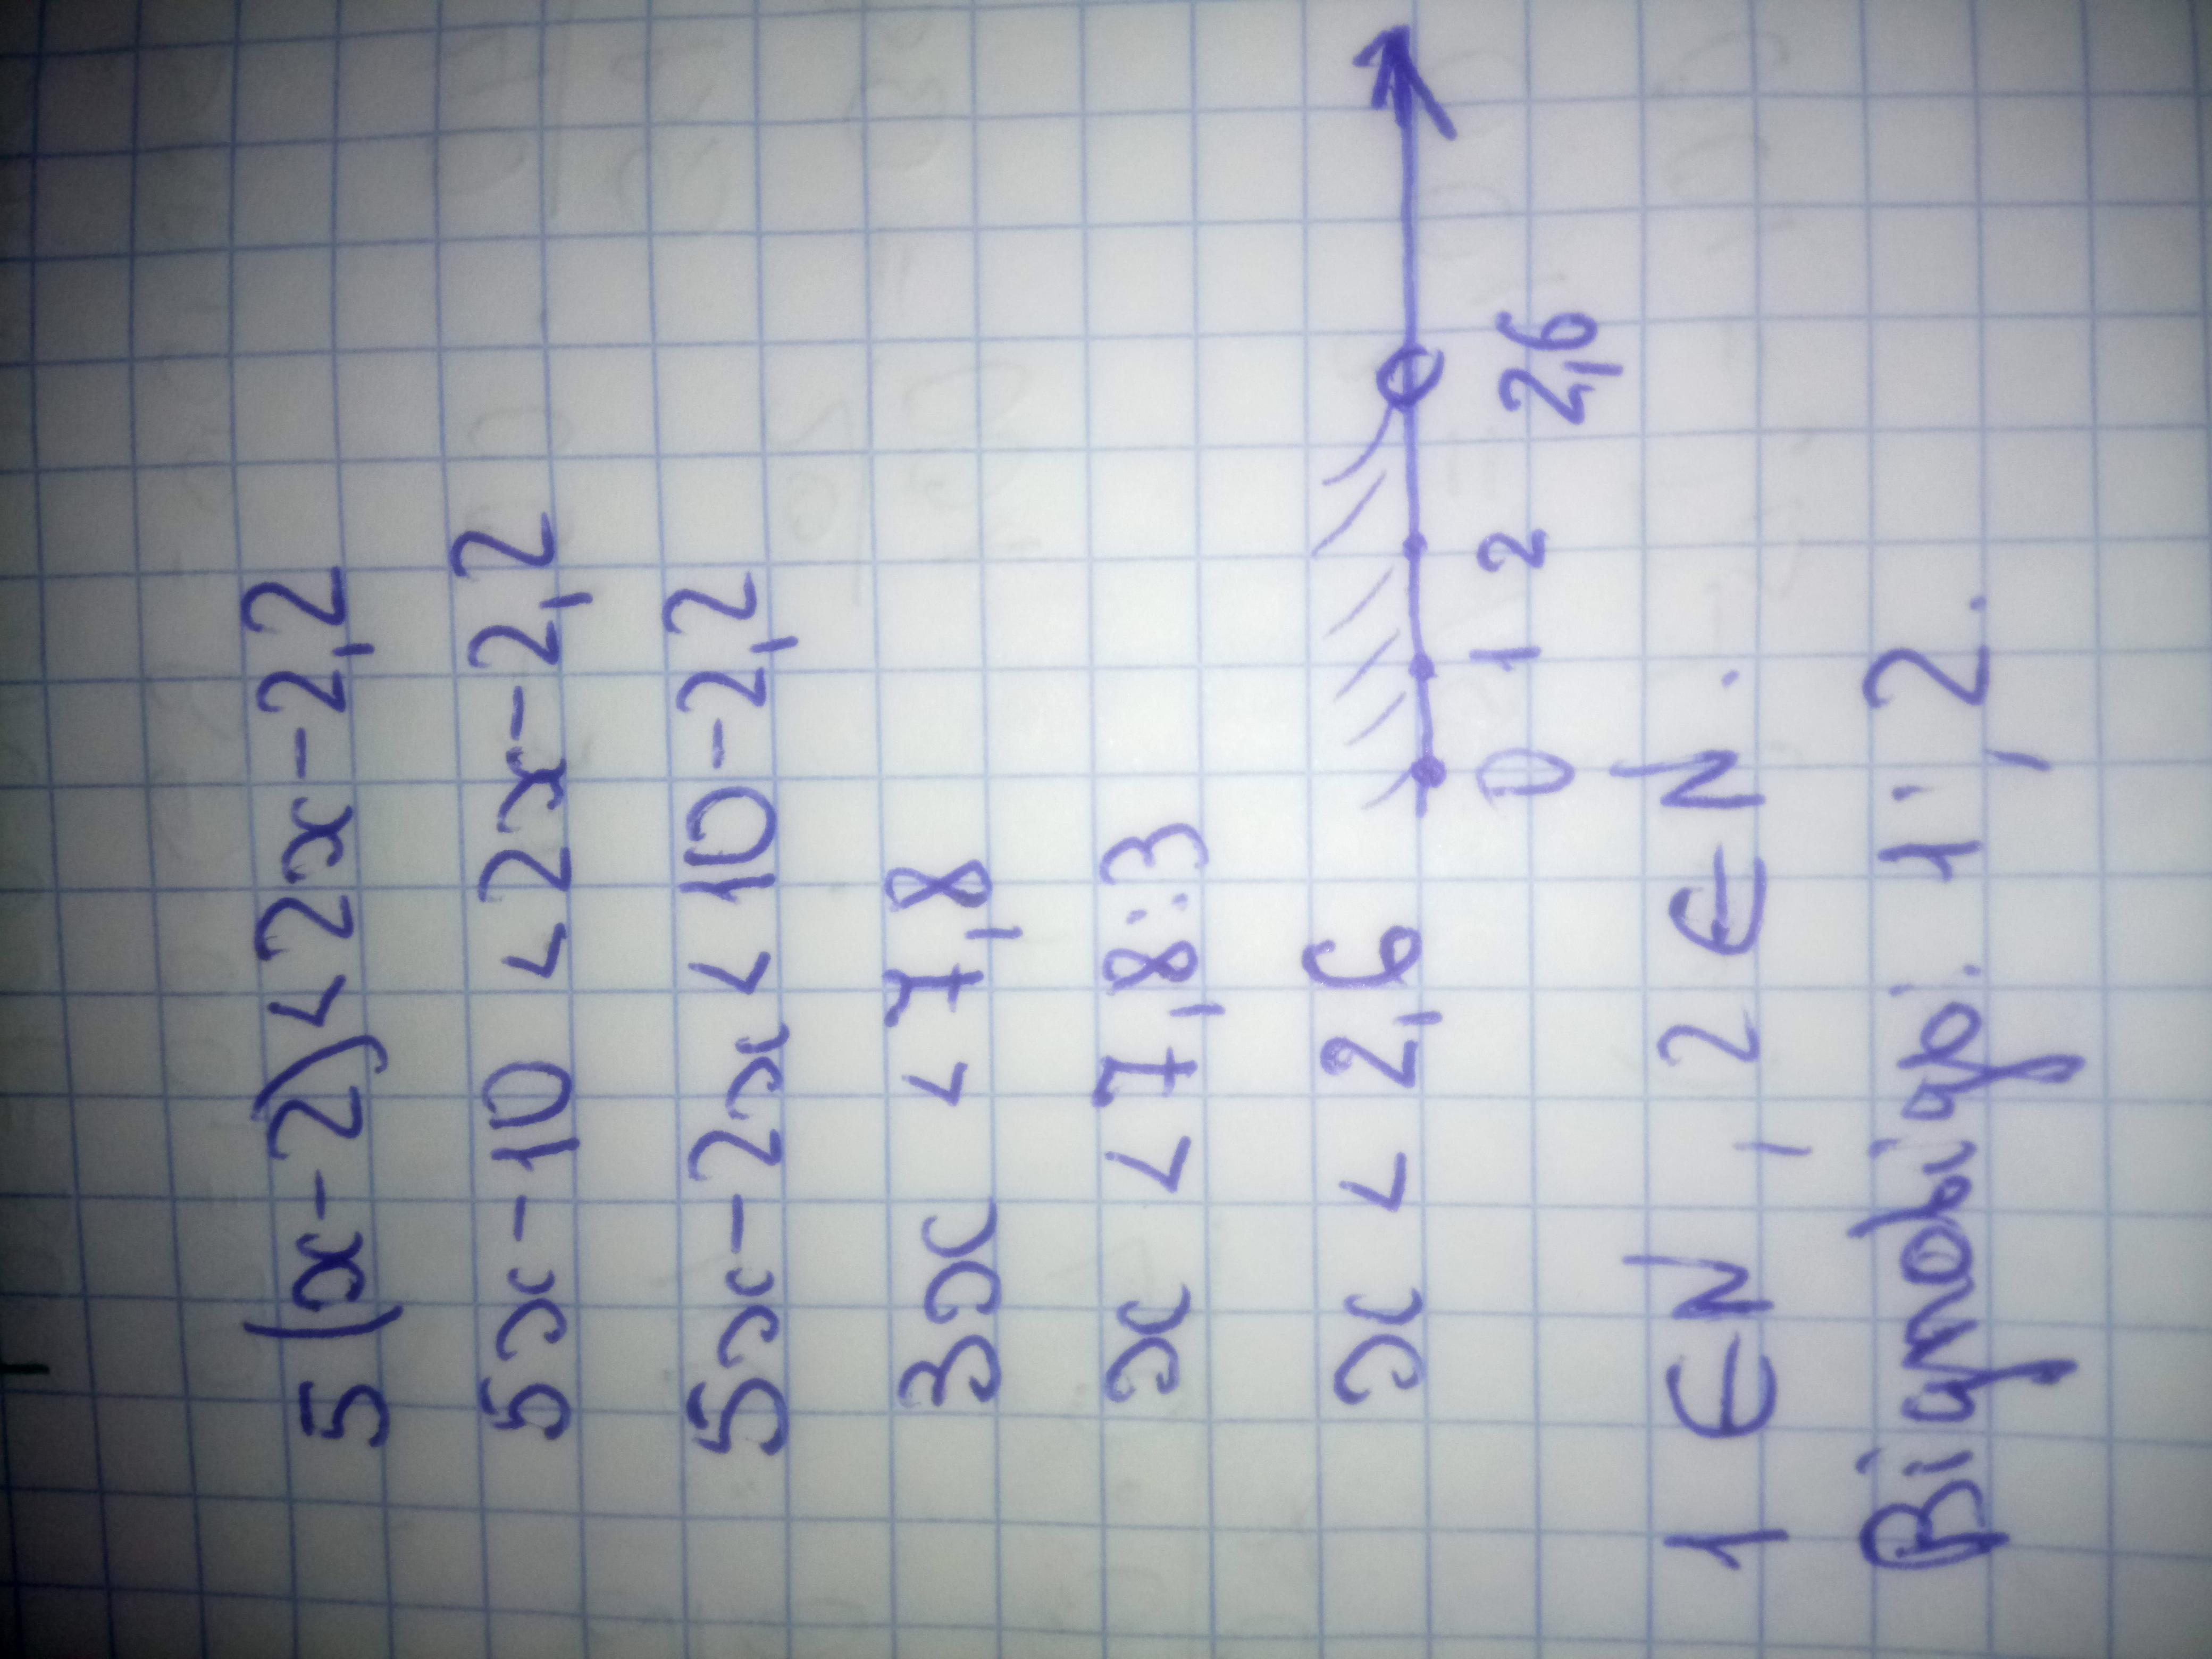 5(x-2)<2x-2,2
5x-10 <2x-2,2
5x-2x < 10-2,2
3x < 7,8
x < 7,8:3
x < 2,6
0 1 2 2,6
1 ∈ N, 2 ∈ N.
Відповідь: 1; 2.